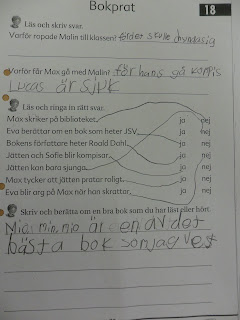 Bokprat
18
Läs och skriv svar.
Varför ropade Malin till klassen?
Varför får Max gå med Malin? för hans gå kompis
Lucas är sjuk
Läs och ringa in rätt svar.
Max skriker på biblioteket. ja nej
Eva berättar om en bok som heter JSV. ja nej
Bokens författare heter Roald Dahl. ja nej
Jätten och Sofie blir kompisar. ja nej
Jätten kan bara sjunga. ja nej
Max tycker att jätten pratar roligt. ja nej
Eva blir arg på Max när han skrattar. ja nej
Skriv och berätta om en bra bok som du har läst eller hört.
Mio, min, mio är en av det
bästa bok som jag vest